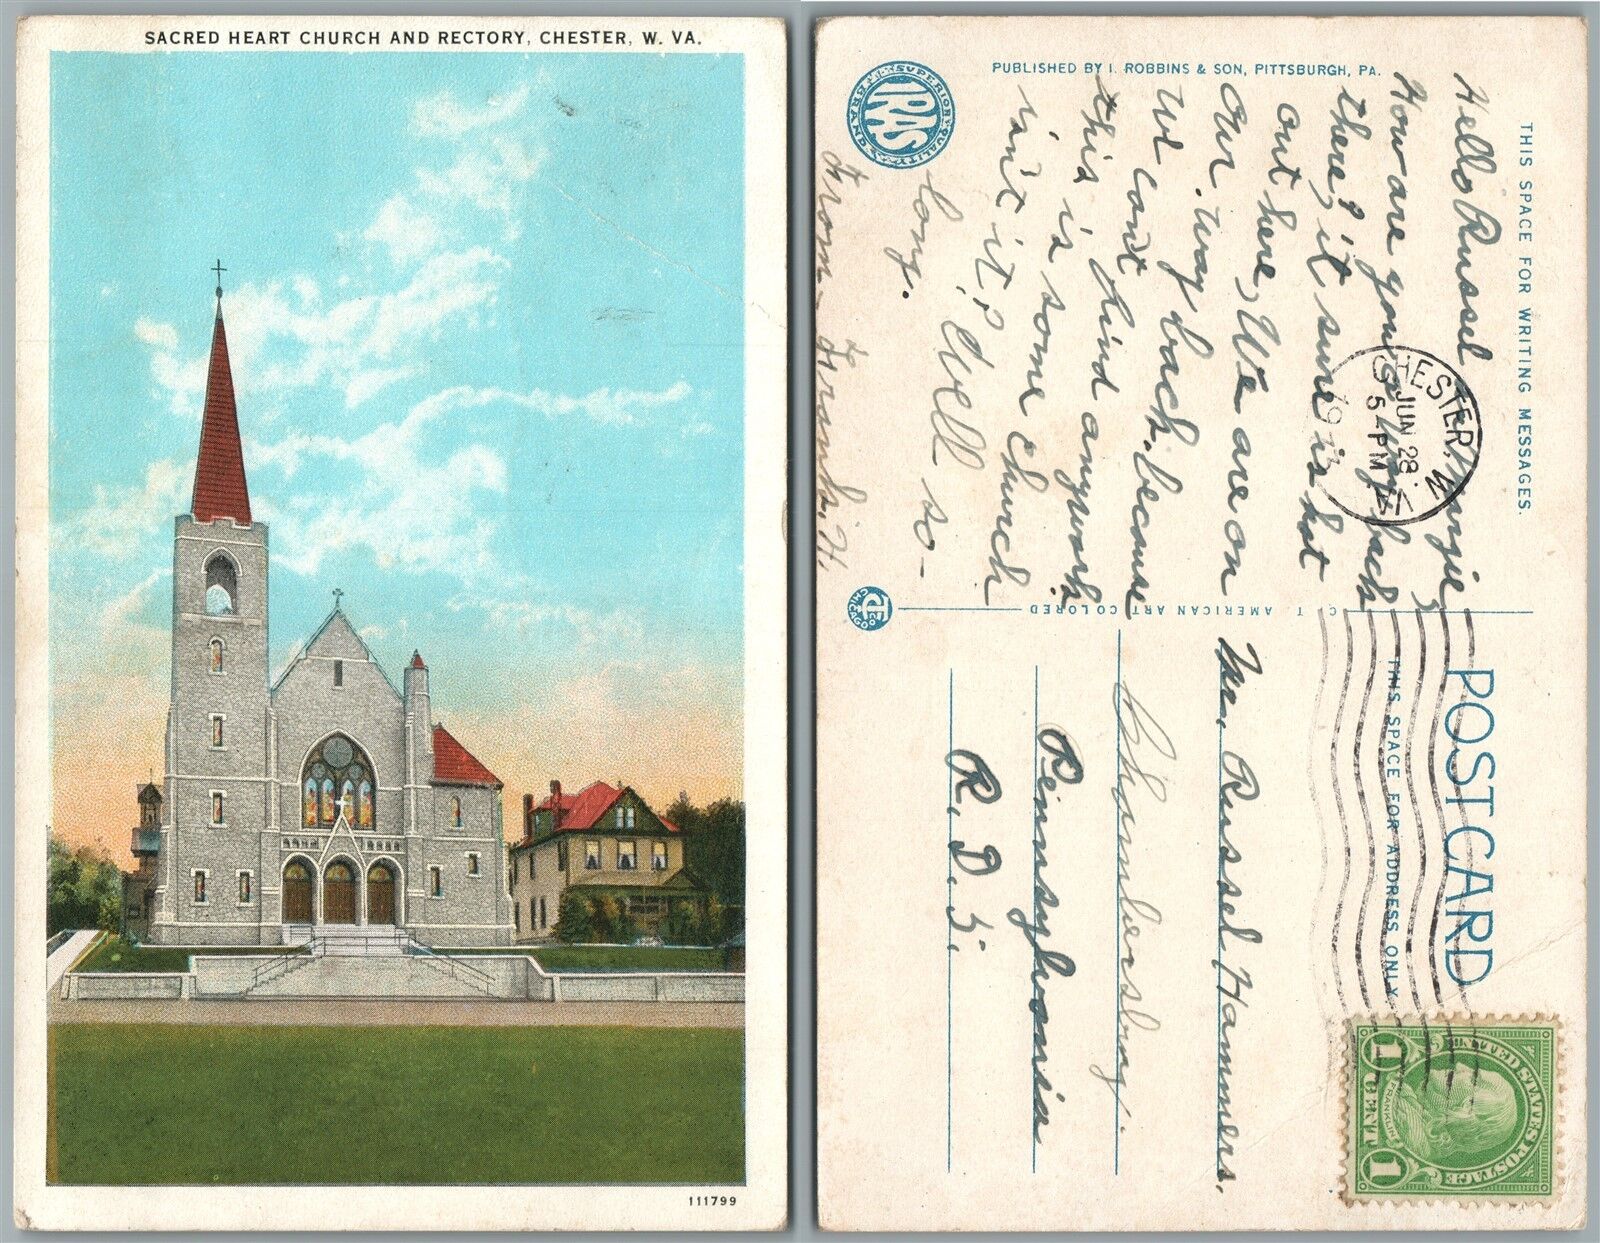 SACRED HEART CHURCH AND RECTORY, CHESTER, W. VA.
111799
THIS SPACE FOR WRITING MESSAGES.
Hello Russel & Margie
How are you & way back
there? it sure is hot
out here, We are on
our way back. because
we cant
this kind anywork
is some church
isn't it? Well so-
long.
From - Frank H.
PUBLISHED BY I. ROBBINS & SON, PITTSBURGH, PA.
IRAS
SUPERIOR QUALITY
BRAND
C. T. AMERICAN ART COLORED
CHICAGO
CHESTER, W. VA.
JUN 28
5 PM
POSTCARD
THIS SPACE FOR ADDRESS ONLY
Mr. Russel Hammers,
Chambersburg.
Pennsylvania
R. D. 5.
UNITED STATES POSTAGE
FRANKLIN
1 CENT 1